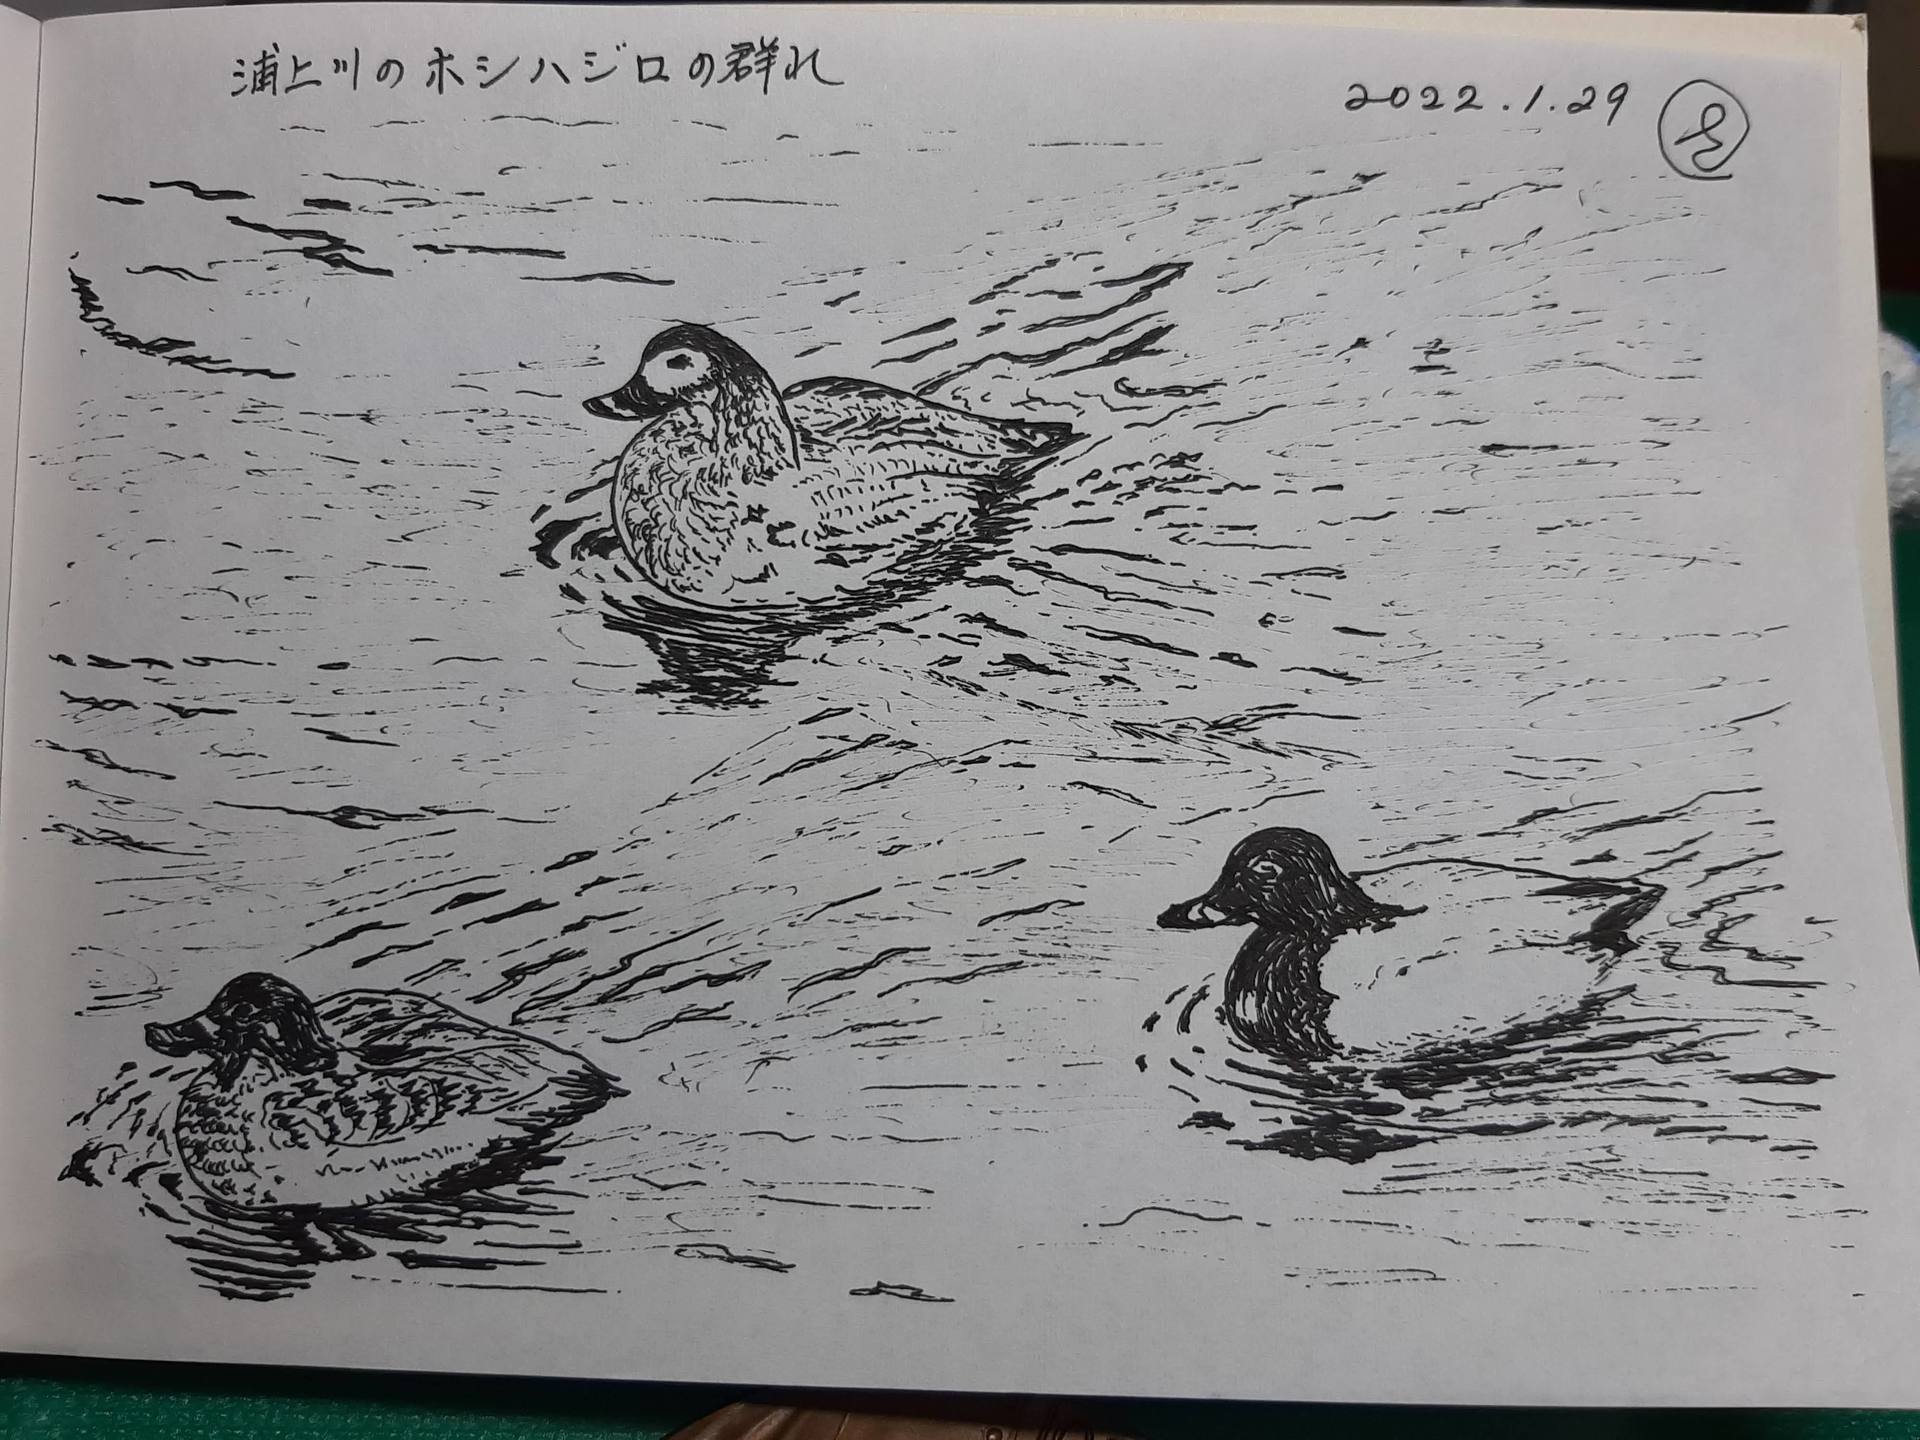 浦上川のホシハジロの群れ
2022.1.29